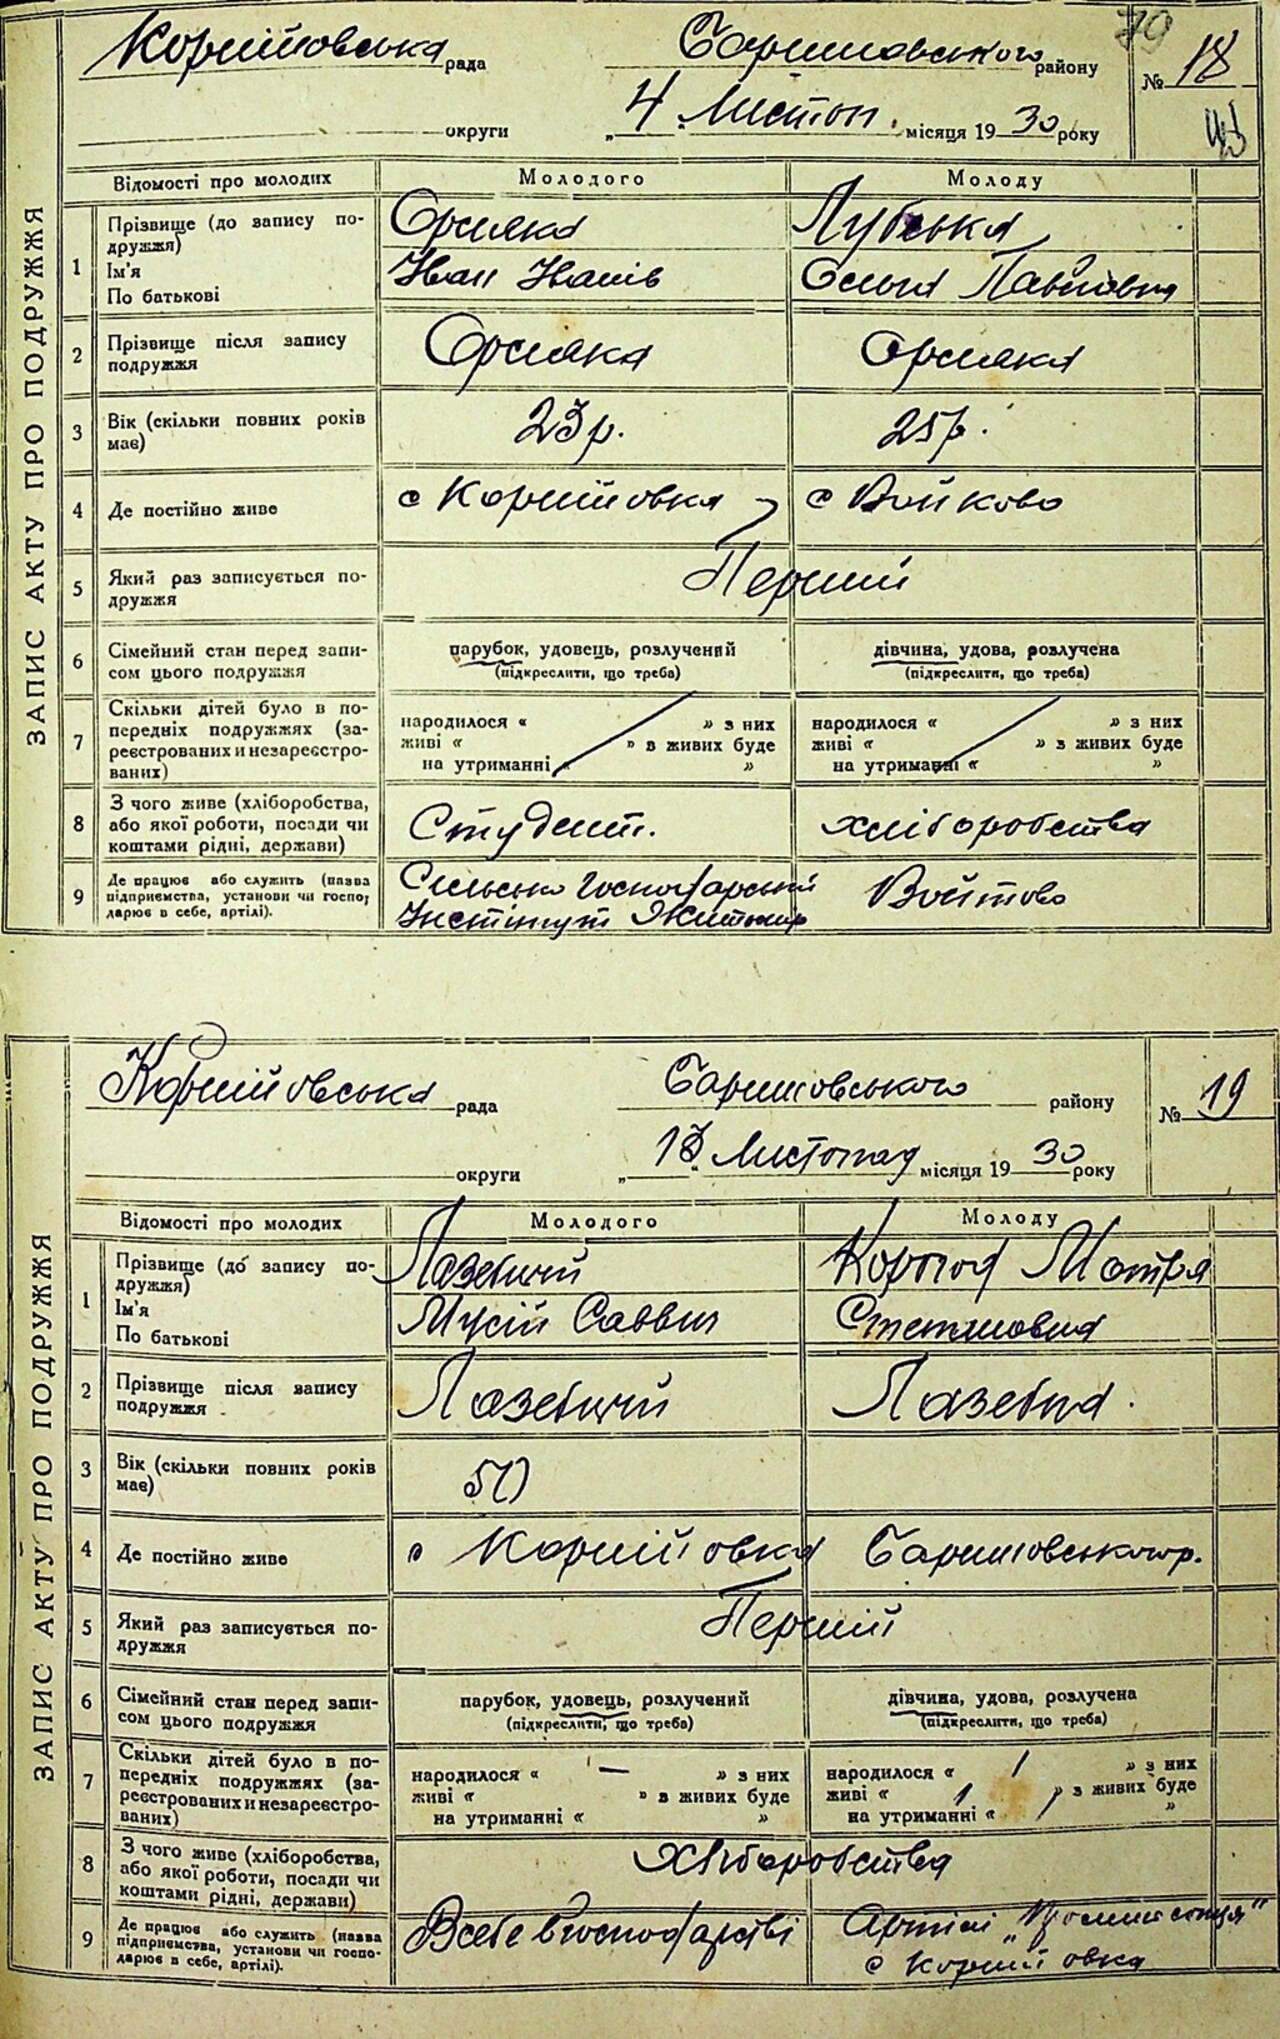 Корнійовська рада Баришовського району № 18
79
округи „4“ Листоп. місяця 1930 року
43
ЗАПИС АКТУ ПРО ПОДРУЖЖЯ
Відомості про молодих Молодого Молоду
1 Прізвище (до запису по-
дружжя)
Ім'я
По батькові
Орсияка
Іван Іванів
Лубська
Олена Павлівна
2 Прізвище після запису
подружжя
Орсияка Орсияка
3 Вік (скільки повних років
має)
23 р. 25 р.
4 Де постійно живе с Корнійовка с Войково
5 Який раз записується по-
дружжя
Перший
6 Сімейний стан перед запи-
сом цього подружжя
парубок, удовець, розлучений
(підкреслити, що треба)
дівчина, удова, розлучена
(підкреслити, що треба)
7 Скільки дітей було в по-
передніх подружжях (за-
реєстрованих и незареєстро-
ваних)
народилося « » з них
живі « » в живих буде
на утриманні « »
народилося « » з них
живі « » з живих буде
на утриманні « »
8 З чого живе (хліборобства,
або якої роботи, посади чи
коштами рідні, держави)
Студент. хліборобства
9 Де працює або служить (назва
підприємства, установи чи госпо;
дарює в себе, артілі).
Сильсько Господарський
Інстітут Житомир
Войтово
Корнійовська рада Баришовського району № 19
округи „13“ Листопад місяця 1930 року
ЗАПИС АКТУ ПРО ПОДРУЖЖЯ
Відомості про молодих Молодого Молоду
1 Прізвище (до запису по-
дружжя)
Ім'я
По батькові
Лазебний
Мусій Саввич
Коргод Мотря
Степановна
2 Прізвище після запису
подружжя
Лазебний Лазебна.
3 Вік (скільки повних років
має)
50
4 Де постійно живе с Корнійовка Баришовського р.
5 Який раз записується по-
дружжя
Перший
6 Сімейний стан перед запи-
сом цього подружжя
парубок, удовець, розлучений
(підкреслити, що треба)
дівчина, удова, розлучена
(підкреслити, що треба)
7 Скільки дітей було в по-
передніх подружжях (за-
реєстрованих и незареєстро-
ваних)
народилося « — » з них
живі « » в живих буде
на утриманні « »
народилося « 1 » з них
живі « 1 » з живих буде
на утриманні « »
8 З чого живе (хліборобства,
або якої роботи, посади чи
коштами рідні, держави)
Хліборобства
9 Де працює або служить (назва
підприємства, установи чи госпо-
дарює в себе, артілі).
В себе в господарстві
Артілі „Проминь сонця“
с Корнійовка